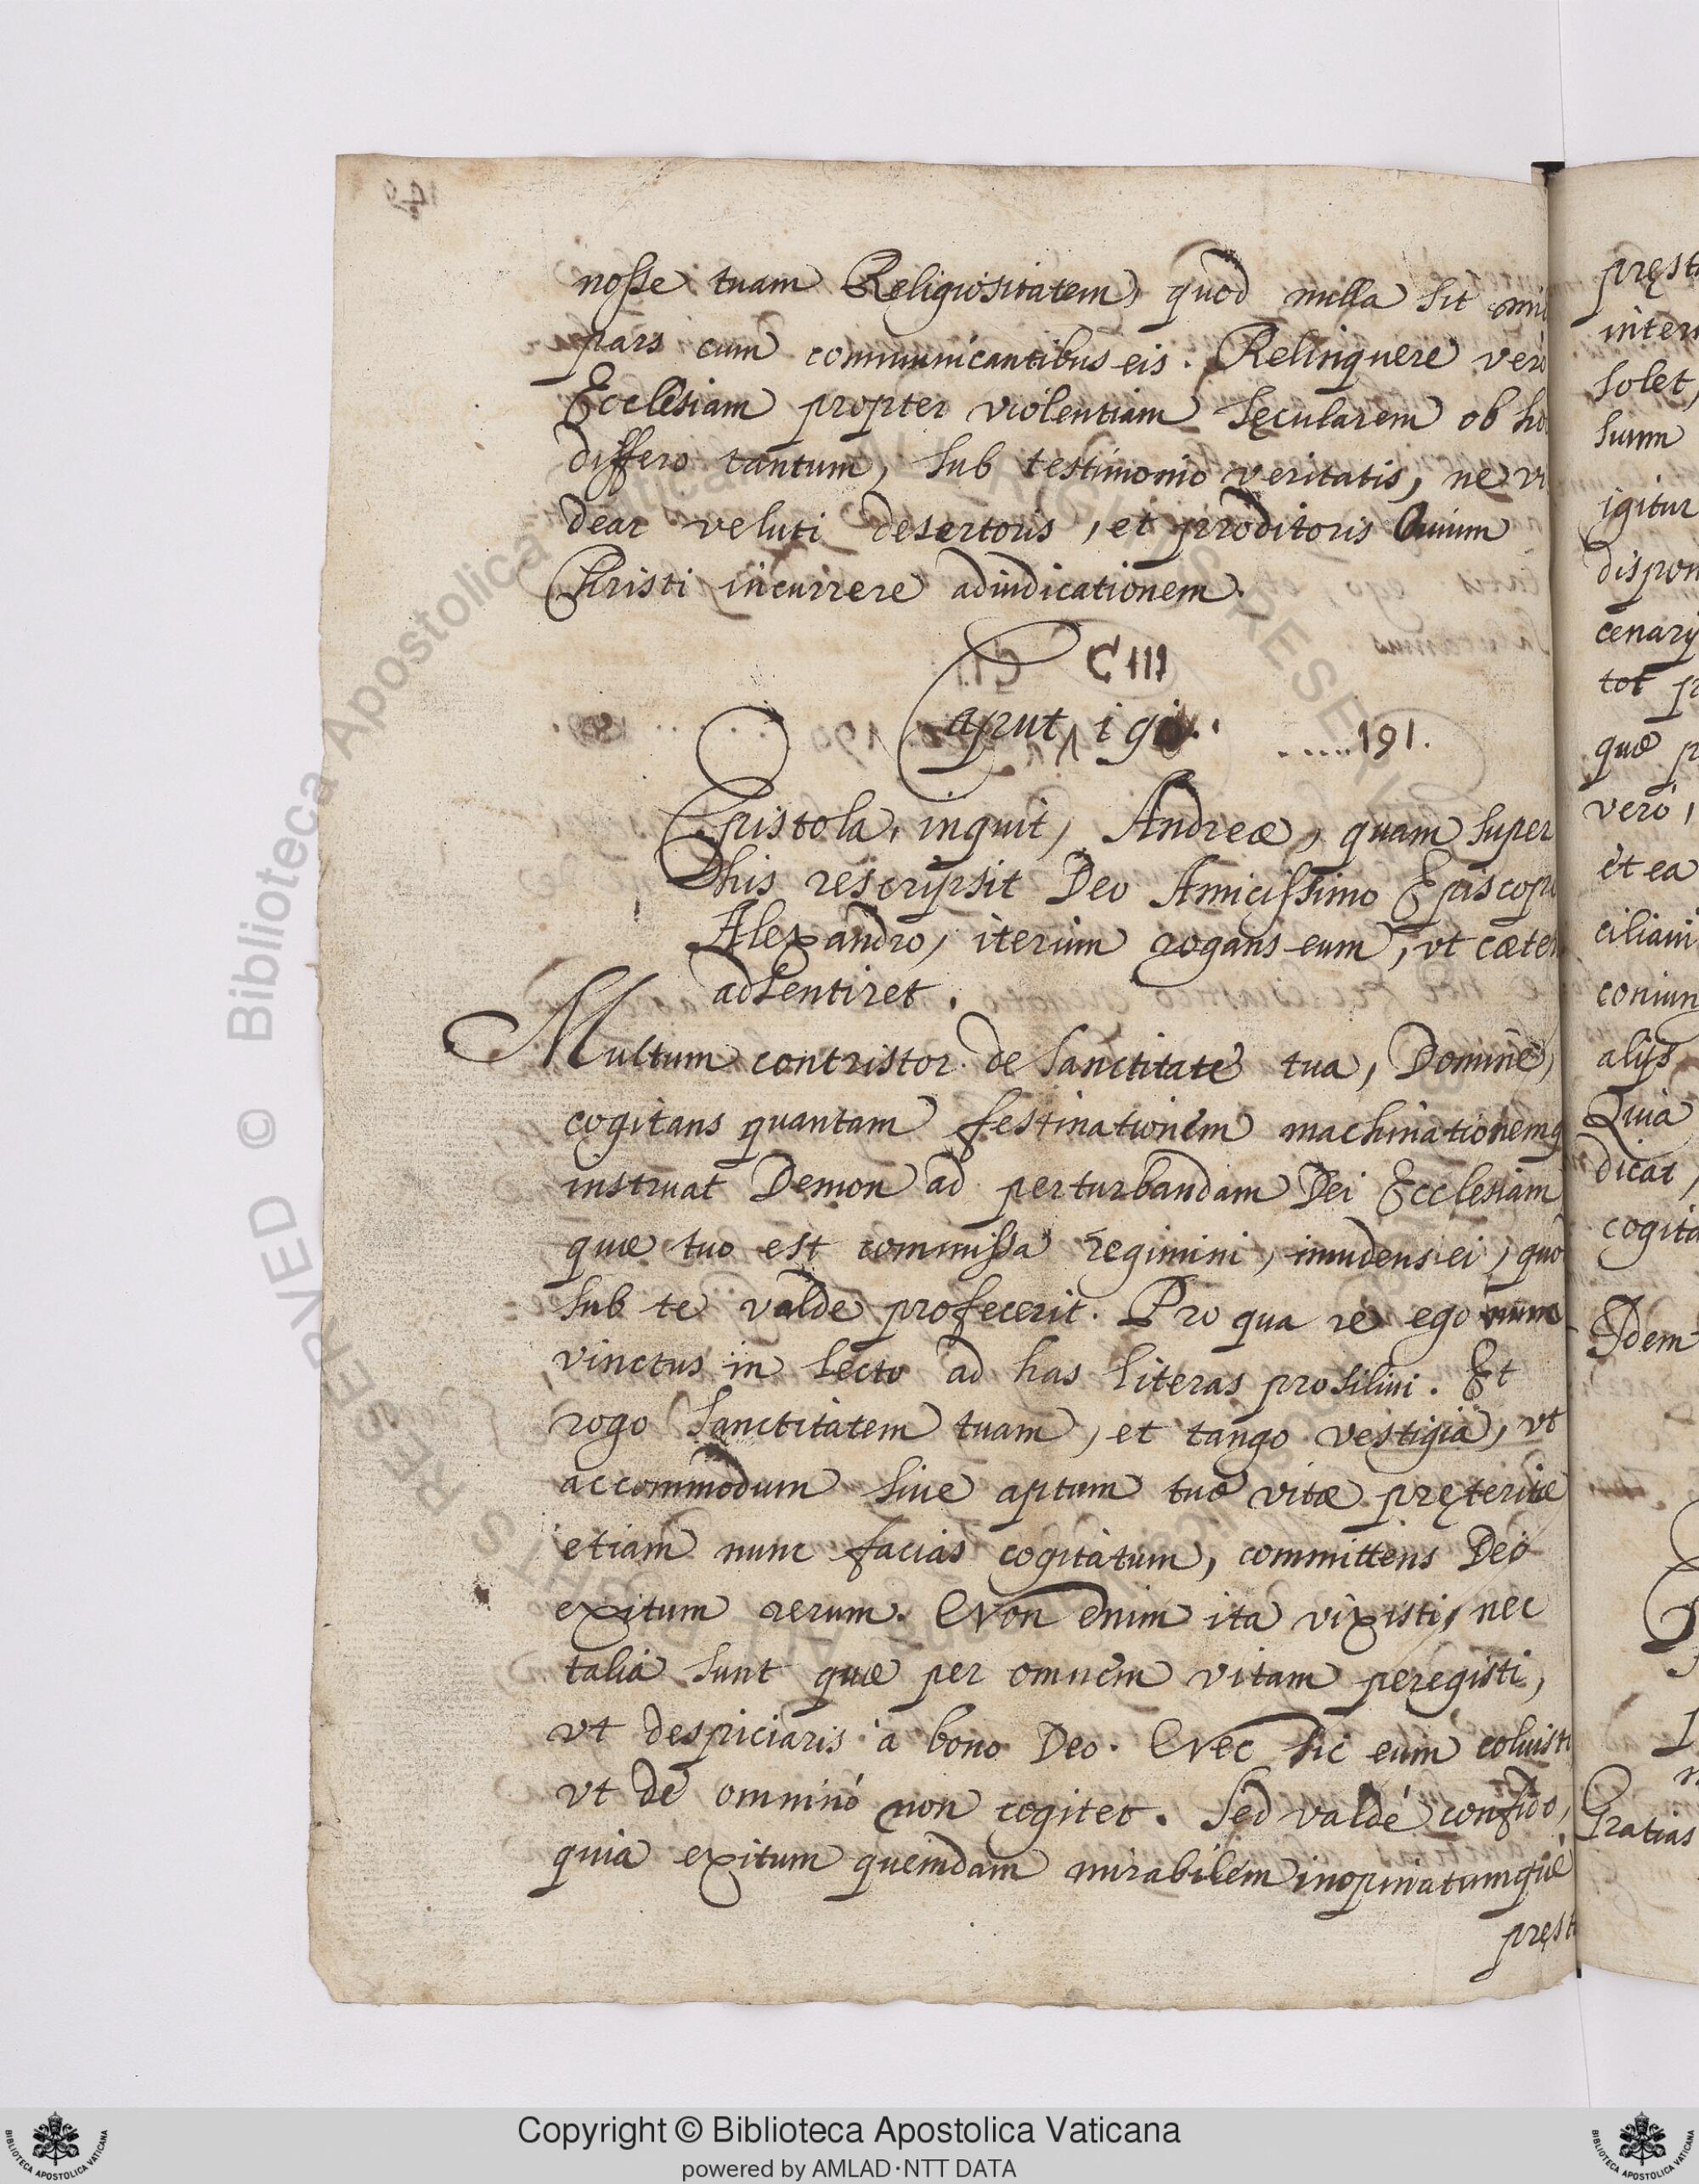 nosse tuam Religiositatem, quod nulla sit mi
pars cum communicantibus eis. Relinquere verò
Ecclesiam propter violentiam sęcularem ob ho
differo tantum, sub testimonio veritatis, ne vi
dear veluti desertoris, et proditoris Ouium
Christi incurrere adiudicationem.
CIII
Caput ......191.
Epistola, inquit, Andreæ, quam super
his rescripsit Deo Amicissimo Episcopo
Alexandro, iterum rogans eum, vt cæter
adsentiret.
Multum contristor de Sanctitate tua, Domine,
cogitans quantam festinationem machinationemq
instruat Demon ad perturbandam Dei Ecclesiam
quæ tuo est commissa regimini, inuidens ei, quod
sub te valde profecerit. Pro qua re ego nunc
vinctus in lecto ad has literas prosiliui. Et
rogo Sanctitatem tuam, et tango vestigia, vt
accommodum siue aptum tuæ vitæ pręteritæ
etiam nunc facias cogitatum, committens Deo
exitum rerum. Non enim ita vixisti, nec
talia sunt quæ per omnem vitam peregisti,
vt despiciaris à bono Deo. Nec sic eum coluisti
vt de omninò non cogitet. Sed valdè confido,
quia exitum quemdam mirabilem inopinatumque
pręst
pręst
inter
solet,
suum
igitur
dispon
cenarij
tot p
quæ p
verò,
et ea
ciliaui
coniun
alijs
Quia
dicat,
cogita
Idem
Gratias
Biblioteca Apostolica Vaticana
ALL RIGHTS RESERVED ©
Copyright © Biblioteca Apostolica Vaticana
powered by AMLAD·NTT DATA
BIBLIOTECA APOSTOLICA VATICANA
BIBLIOTECA APOSTOLICA VATICANA